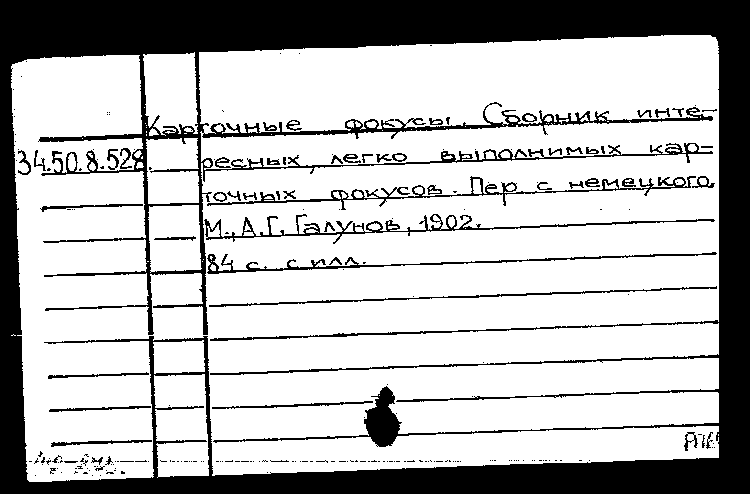 Карточные фокусы. Сборник инте-
34.50.8.528. ресных, легко выполнимых кар-
точных фокусов. Пер. с немецкого.
М., А.Г. Галунов, 1902.
84 с. с илл.